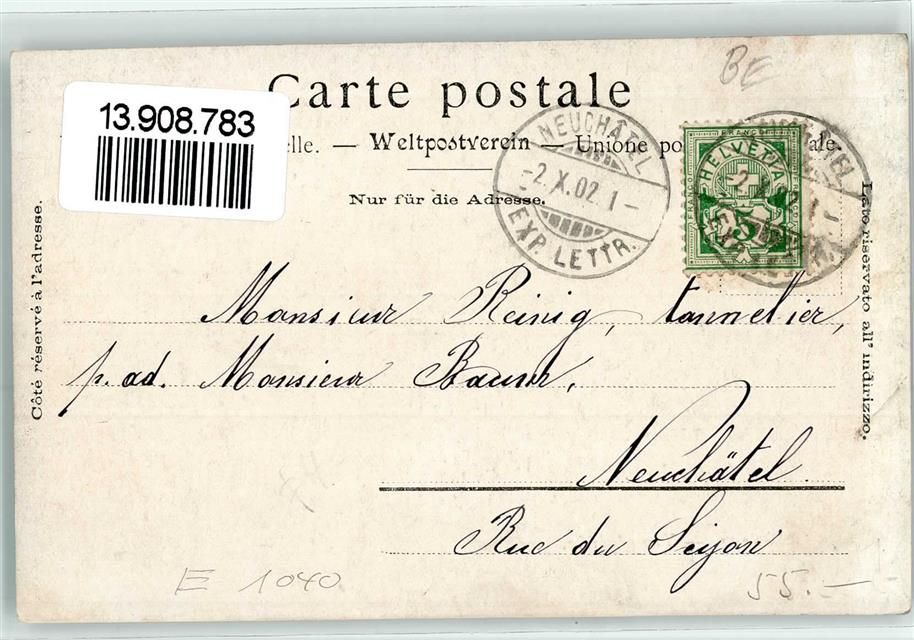 BE
Carte postale
13.908.783
elle. — Weltpostverein — Unione po ale.
Nur für die Adresse.
NEUCHÂTEL
-2.X.02.1-
EXP. LETTR.
FRANCO
HELVETIA
5
Côté réservé à l'adresse.
Lato riservato all' indirizzo.
Monsieur Reinig, tonnelier,
p. ad. Monsieur Baur,
Neuchâtel
Rue du Seyon
E 1040
55.—